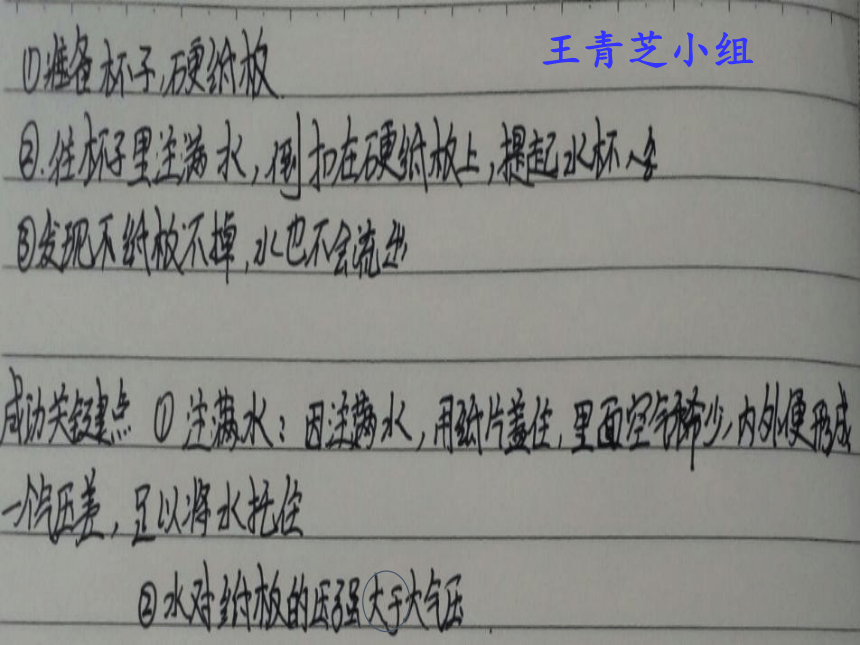 王青芝小组
①准备杯子,硬纸板
②.往杯子里注满水,倒扣在硬纸板上,提起水杯
③发现不纸板不掉,水也不会流出
成功关键点 ①注满水:因注满水,用纸片盖住,里面空气稀少,内外便形成
一个气压差,足以将水托住
②水对纸板的压强大于大气压